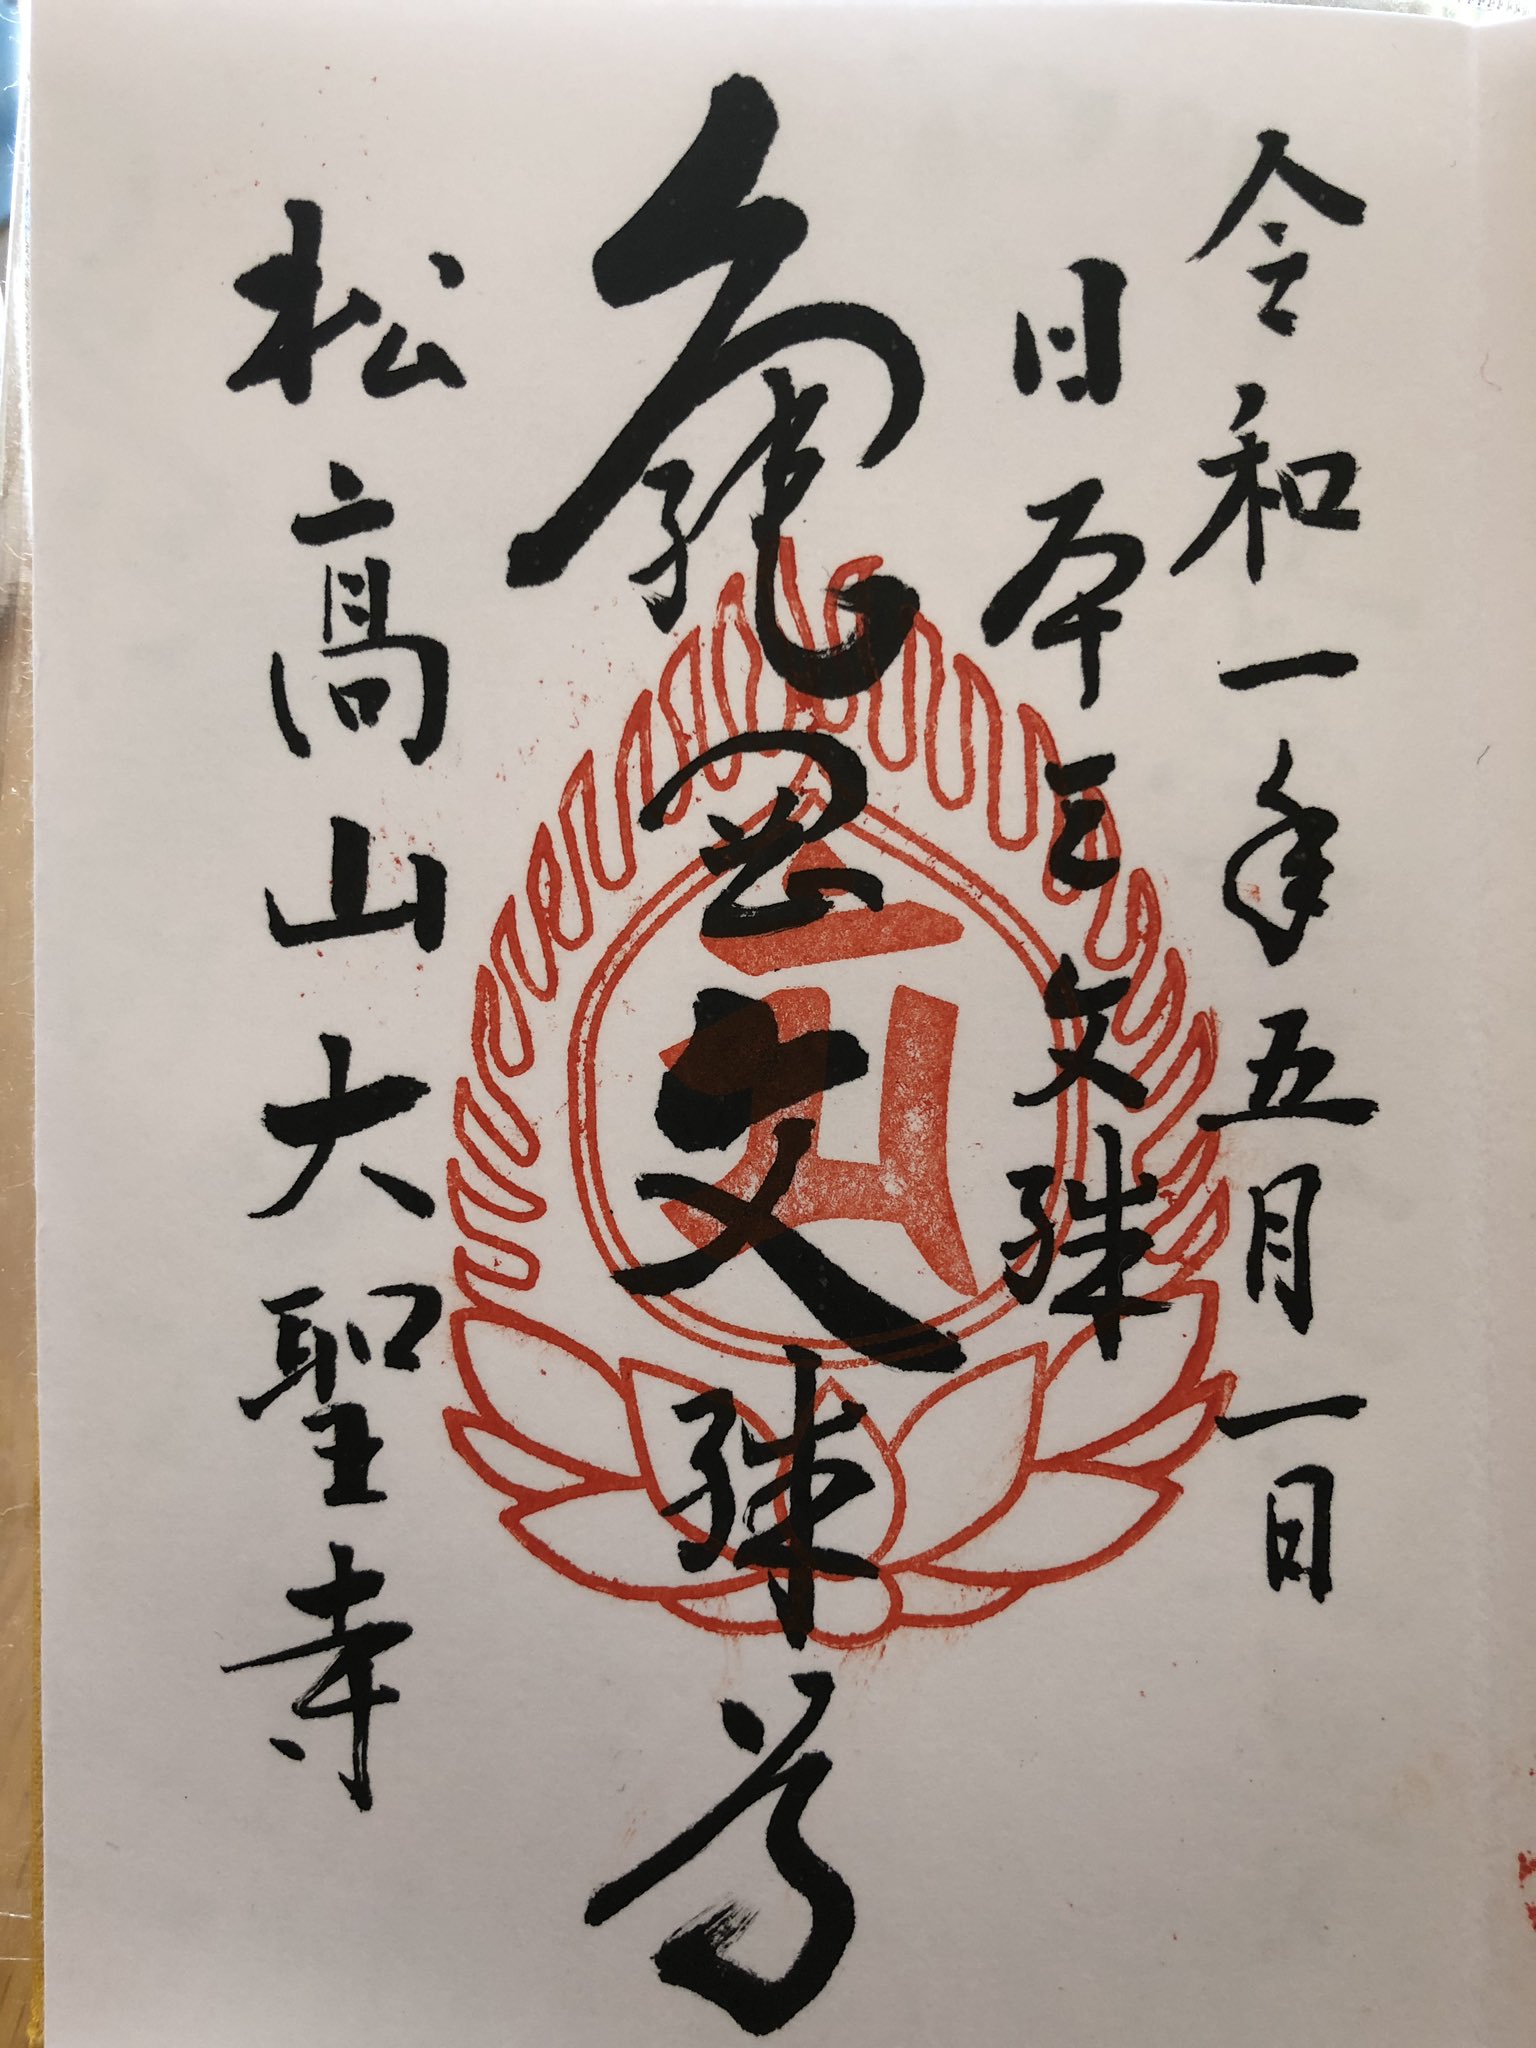 令和一年五月一日
日本三文殊
亀岡文殊尊
松高山大聖寺